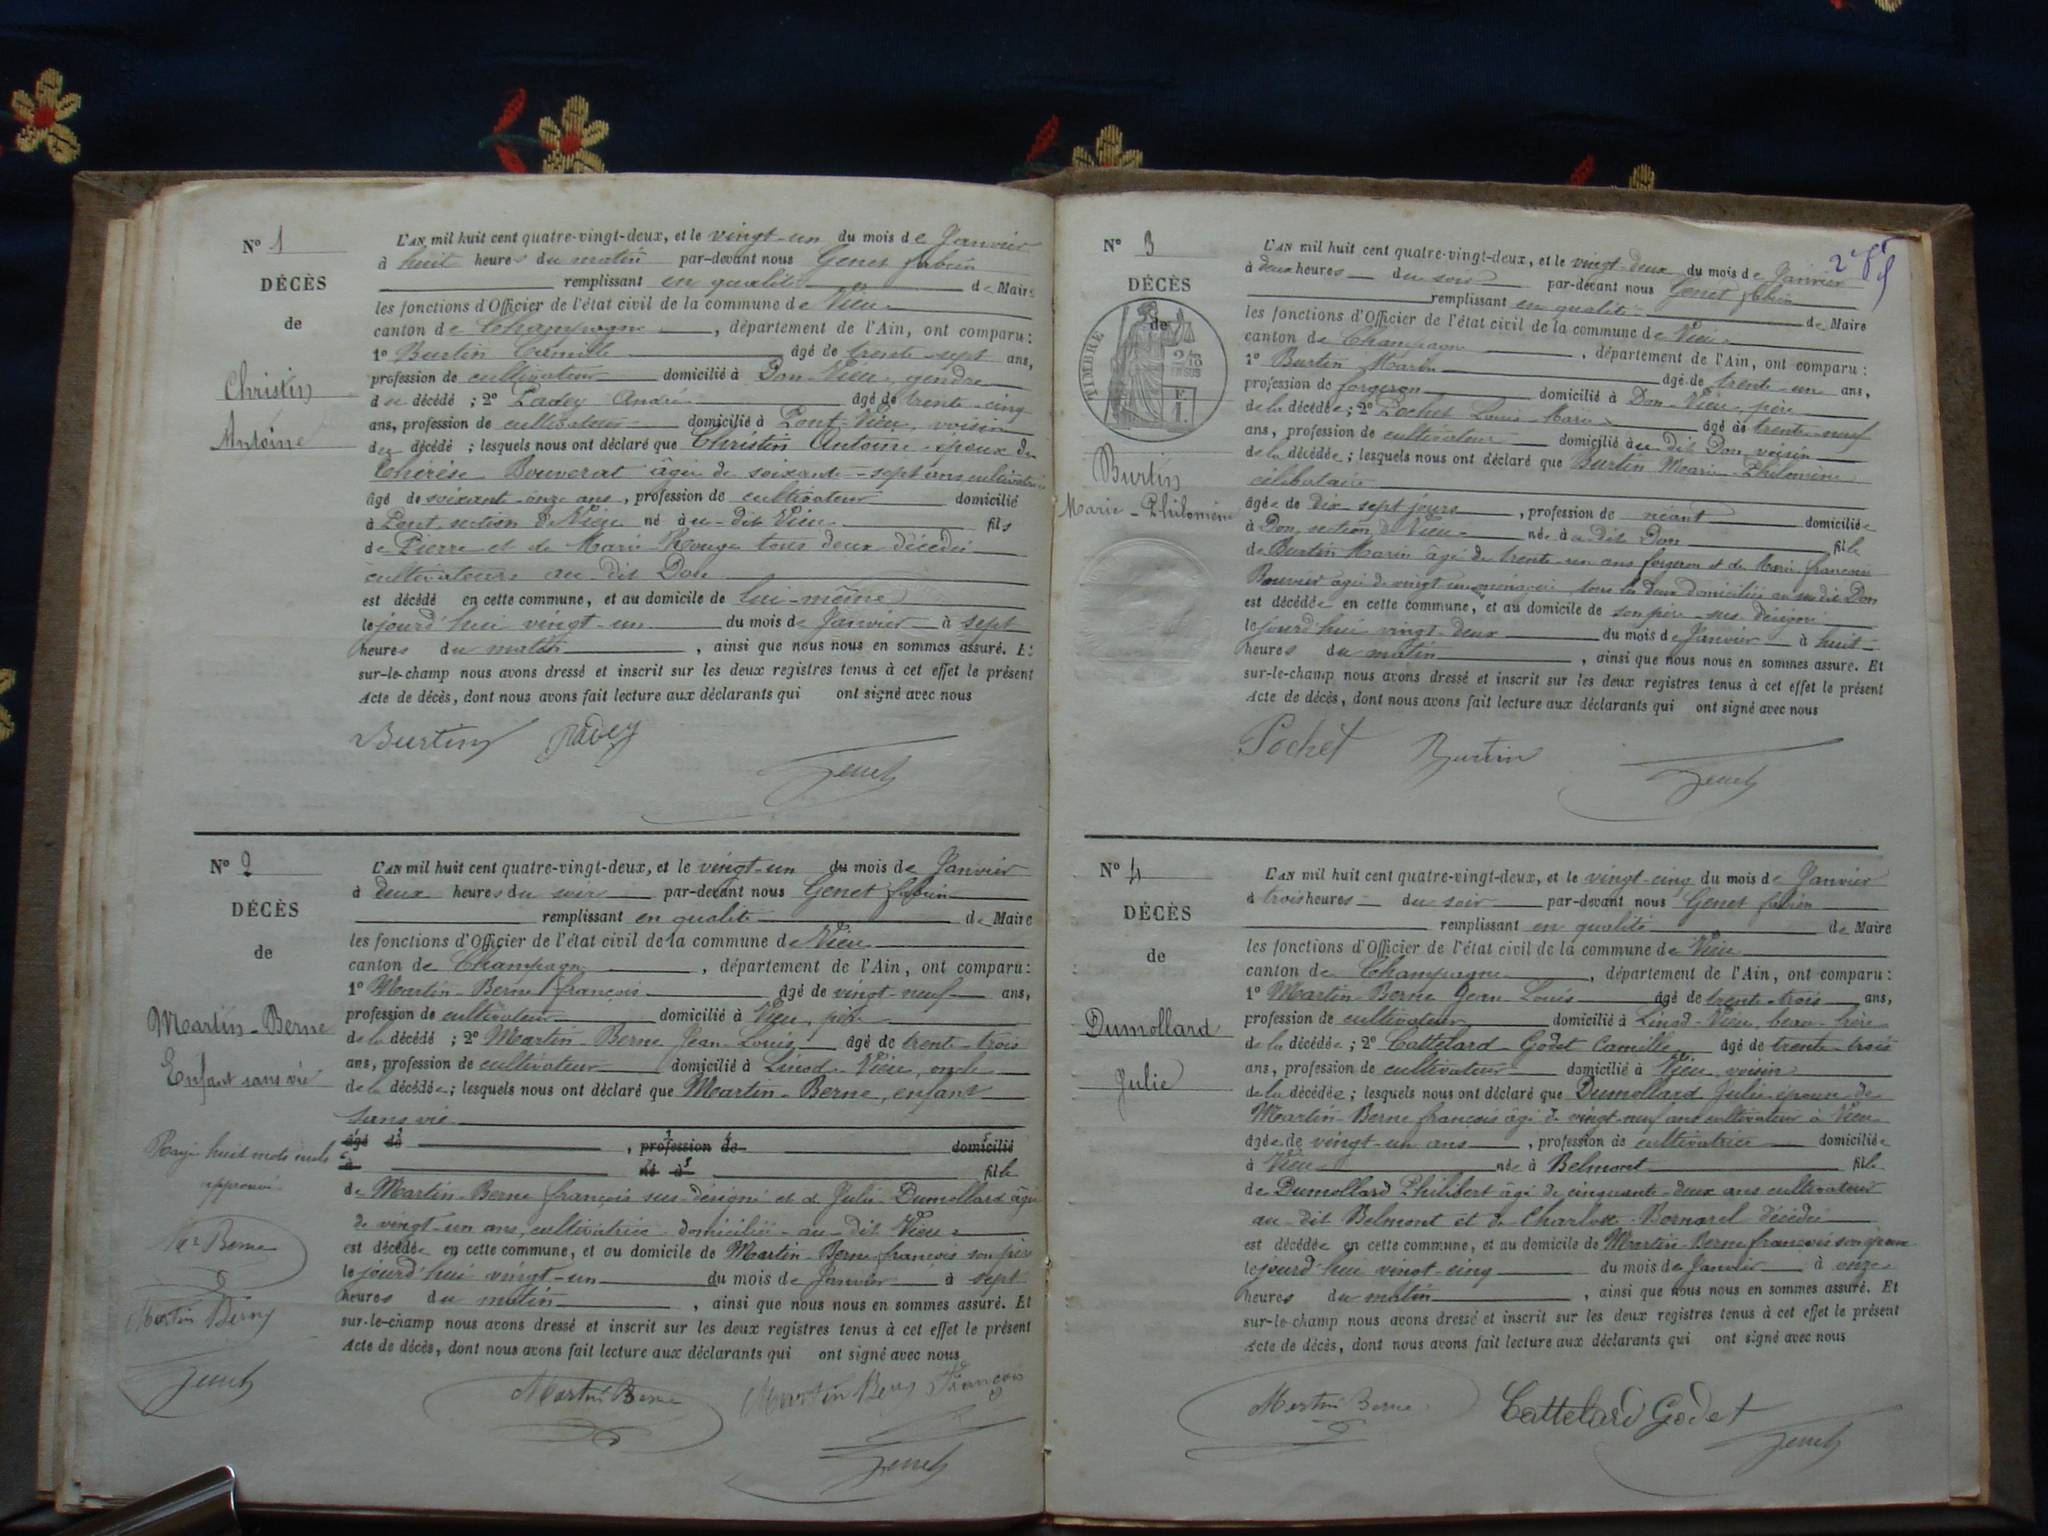 N° 1
DÉCÈS
de
Christin
Antoine
L'AN mil huit cent quatre-vingt-deux, et le vingt-un du mois de Janvier
à huit heures du matin par-devant nous Genet fabien
remplissant en qualité de Maire
les fonctions d'Officier de l'état civil de la commune de Vieu
canton de Champagne, département de l'Ain, ont comparu :
1° Burtin Camille âgé de trente-sept ans,
profession de cultivateur domicilié à Don-Vieu, gendre
du décédé ; 2° André âgé de trente-cinq
ans, profession de cultivateur domicilié à Pont-Vieu, voisin
du décédé ; lesquels nous ont déclaré que Christin Antoine époux de
Thérèse Bouverat âgée de soixante-sept ans cultivatrice
âgé de soixant-onze ans, profession de cultivateur domicilié
à Pont, section de Vieu né au-dit Vieu fils
de Pierre et de Marie Rouge tous deux décédés
cultivateurs au-dit Don
est décédé en cette commune, et au domicile de lui-même
le jourd'hui vingt-un du mois de Janvier à sept
heures du matin, ainsi que nous nous en sommes assuré. Et
sur-le-champ nous avons dressé et inscrit sur les deux registres tenus à cet effet le présent
Acte de décès, dont nous avons fait lecture aux déclarants qui ont signé avec nous
Burtin
Genet
N° 2
DÉCÈS
de
Martin-Berne
Enfant sans vie
Rayé huit mots nuls
approuvé
Mar Berne
Martin Berne
Genet
L'AN mil huit cent quatre-vingt-deux, et le vingt-un du mois de Janvier
à deux heures du soir par-devant nous Genet fabien
remplissant en qualité de Maire
les fonctions d'Officier de l'état civil de la commune de Vieu
canton de Champagne, département de l'Ain, ont comparu :
1° Martin-Berne françois âgé de vingt-neuf ans,
profession de cultivateur domicilié à Vieu, père
de la décédé ; 2° Martin-Berne Jean-Louis âgé de trente-trois
ans, profession de cultivateur domicilié à Linod-Vieu, oncle
de la décédée ; lesquels nous ont déclaré que Martin-Berne, enfant
sans vie
âgé de, profession de domicilié
à né à fille
de Martin-Berne françois sus-désigné et de Julie Dumollard âgée
de vingt-un ans, cultivatrice domiciliée au-dit Vieu
est décédée en cette commune, et au domicile de Martin-Berne françois son père
le jourd'hui vingt-un du mois de Janvier à sept
heures du matin, ainsi que nous nous en sommes assuré. Et
sur-le-champ nous avons dressé et inscrit sur les deux registres tenus à cet effet le présent
Acte de décès, dont nous avons fait lecture aux déclarants qui ont signé avec nous
Martin Berne Martin Berne François
Genet
N° 3
DÉCÈS
de
TIMBRE
Burtin
Marie-Philomène
L'AN mil huit cent quatre-vingt-deux, et le vingt-deux du mois de Janvier
à deux heures du soir par-devant nous Genet fabien
remplissant en qualité de Maire
les fonctions d'Officier de l'état civil de la commune de Vieu
canton de Champagne, département de l'Ain, ont comparu :
1° Burtin Marin âgé de trente-un ans,
profession de forgeron domicilié à Don-Vieu, père
de la décédée ; 2° Pochet Louis-Marie âgé de trente-neuf
ans, profession de cultivateur domicilié au dit Don voisin
de la décédée ; lesquels nous ont déclaré que Burtin Marie-Philomène
célibataire
âgée de dix-sept jours, profession de néant domiciliée
à Don, section de Vieu née au dit Don fille
de Burtin Marin âgé de trente-un ans forgeron et de Marie françoise
Bouvier âgée de vingt un ménagère tous les deux domiciliés au susdit Don
est décédée en cette commune, et au domicile de son père sus-désigné
le jourd'hui vingt-deux du mois de Janvier à huit
heures du matin, ainsi que nous nous en sommes assuré. Et
sur-le-champ nous avons dressé et inscrit sur les deux registres tenus à cet effet le présent
Acte de décès, dont nous avons fait lecture aux déclarants qui ont signé avec nous
Pochet Burtin
Genet
N° 4
DÉCÈS
de
Dumollard
Julie
L'AN mil huit cent quatre-vingt-deux, et le vingt-cinq du mois de Janvier
à trois heures du soir par-devant nous Genet fabien
remplissant en qualité de Maire
les fonctions d'Officier de l'état civil de la commune de Vieu
canton de Champagne, département de l'Ain, ont comparu :
1° Martin-Berne Jean Louis âgé de trente-trois ans,
profession de cultivateur domicilié à Linod-Vieu, beau-frère
de la décédée ; 2° Cattelard-Godet Camille âgé de trente-trois
ans, profession de cultivateur domicilié à Vieu, voisin
de la décédée ; lesquels nous ont déclaré que Dumollard Julie épouse de
Martin-Berne françois âgé de vingt-neuf ans cultivateur à Vieu
âgée de vingt-un ans, profession de cultivatrice domiciliée
à Vieu née à Belmont fille
de Dumollard Philibert âgé de cinquante-deux ans cultivateur
au dit Belmont et de Charlotte Bornarel décédée
est décédée en cette commune, et au domicile de Martin-Berne françois son époux
le jourd'hui vingt-cinq du mois de Janvier à onze
heures du matin, ainsi que nous nous en sommes assuré. Et
sur-le-champ nous avons dressé et inscrit sur les deux registres tenus à cet effet le présent
Acte de décès, dont nous avons fait lecture aux déclarants qui ont signé avec nous
Martin Berne Cattelard Godet
Genet